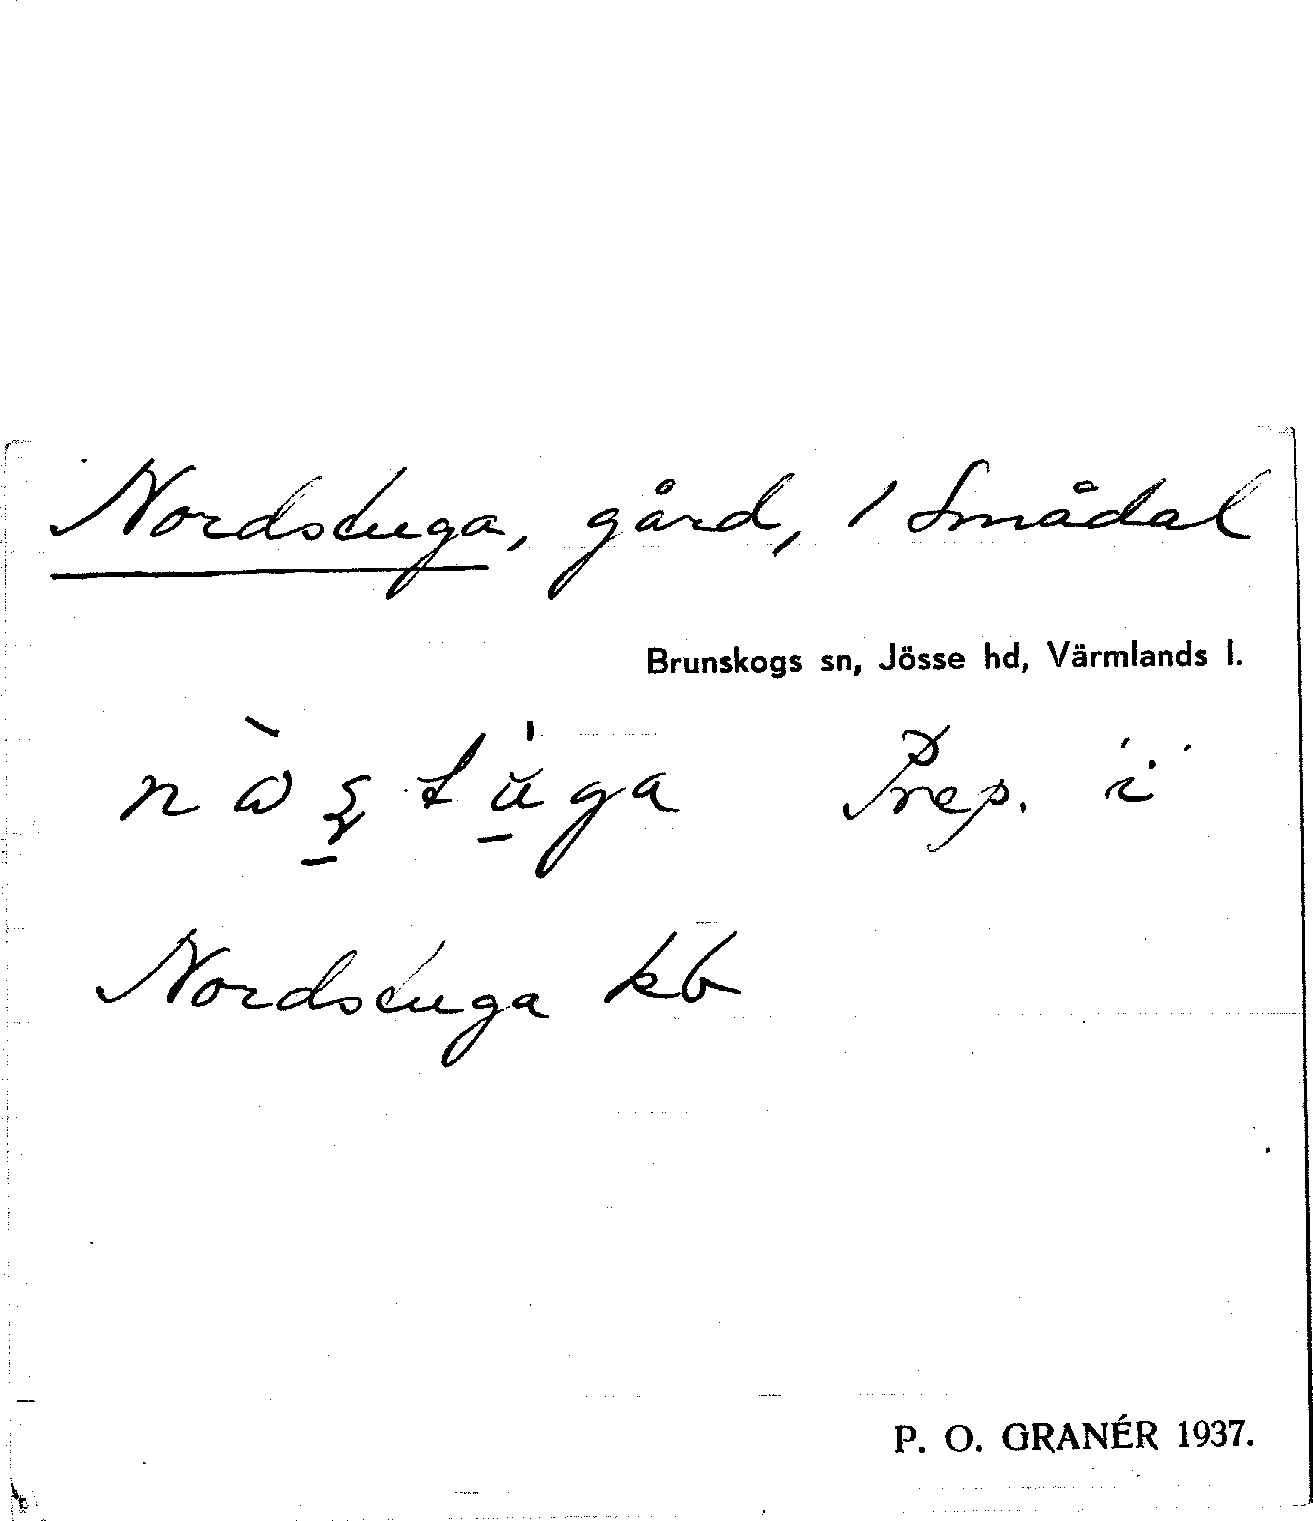 Nordstuga, gård, 1 Smådal
Brunskogs sn, Jösse hd, Värmlands l.
Prep. i
Nordstuga kb
P. O. GRANÉR 1937.